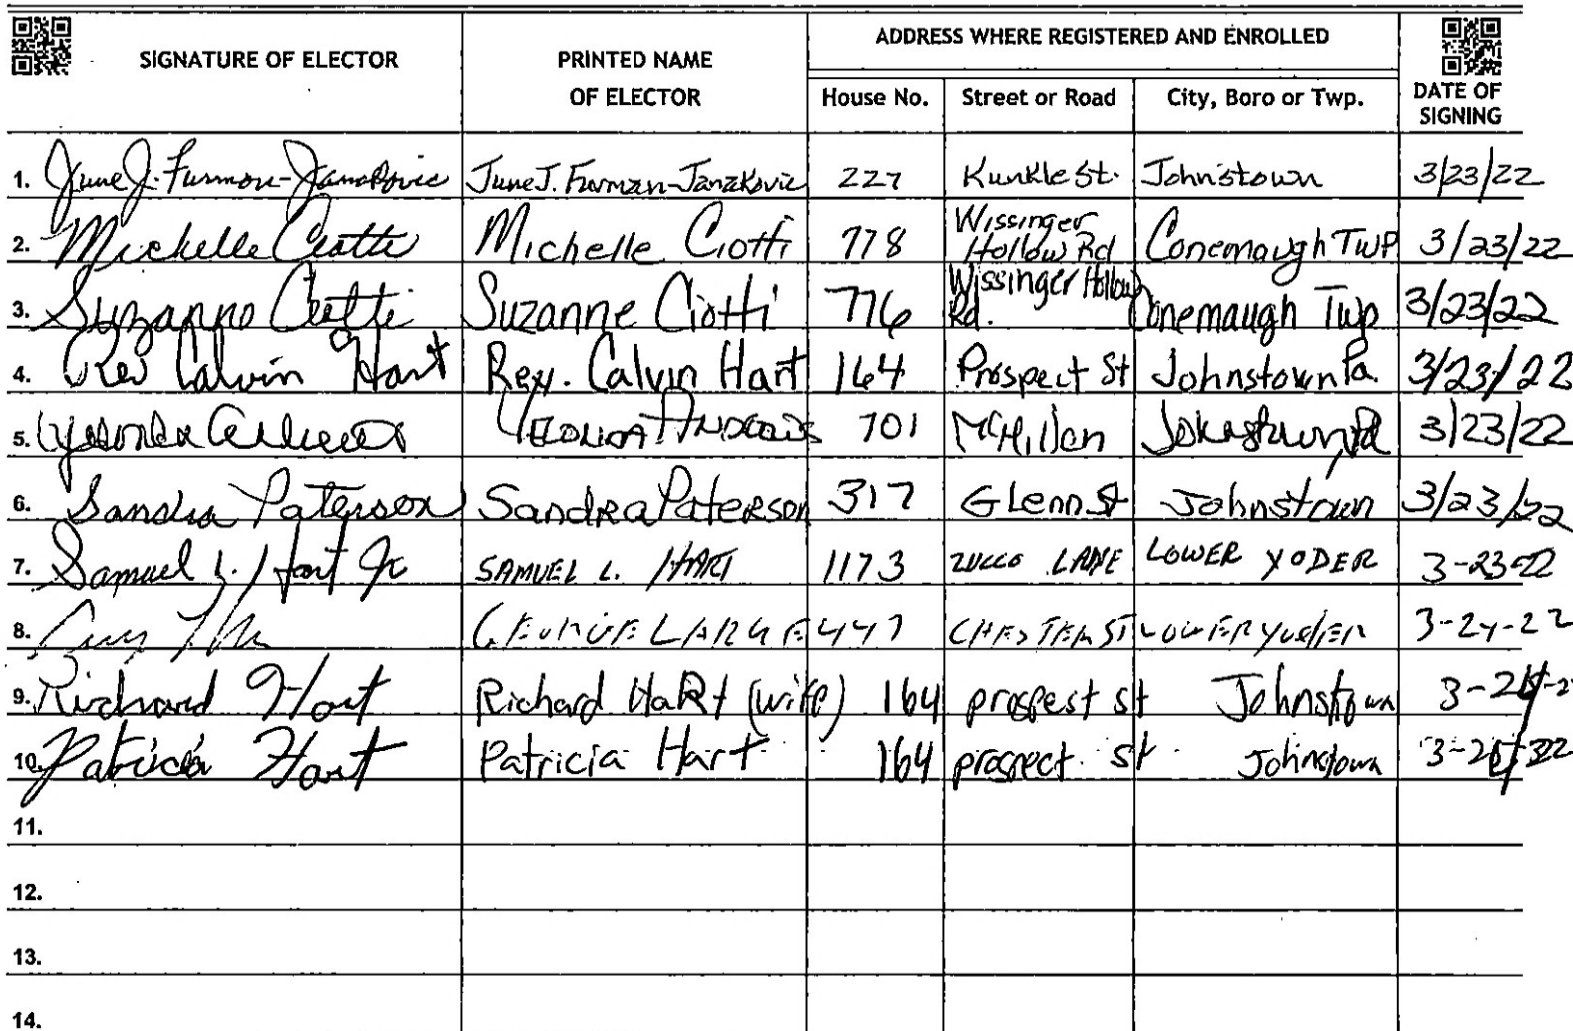 SIGNATURE OF ELECTOR PRINTED NAME OF ELECTOR ADDRESS WHERE REGISTERED AND ENROLLED
House No. Street or Road City, Boro or Twp. DATE OF SIGNING
1. June J. Furman-Janakovic June J. Furman-Janakovic 227 Kunkle St. Johnstown 3/23/22
2. Michelle Ciotti Michelle Ciotti 778 Wissinger Hollow Rd Conemaugh TWP 3/23/22
3. Suzanne Ciotti Suzanne Ciotti 776 Wissinger Hollow Rd. Conemaugh Twp 3/23/22
4. Rev Calvin Hart Rev. Calvin Hart 164 Prospect St Johnstown Pa. 3/23/22
5. 701 Johnstown, Pa 3/23/22
6. Sandra Paterson Sandra Paterson 317 Glenn St Johnstown 3/23/22
7. Samuel L. Hart Jr SAMUEL L. HART 1173 ZUCCO LANE LOWER YODER 3-23-22
8. GEORGE LARGE 447 CHESTER ST LOWER YODER 3-24-22
9. Richard Hart Richard HaRt (wife) 164 prospest st Johnstown
10. Patricia Hart Patricia Hart 164 prospect st Johnstown
11.
12.
13.
14.